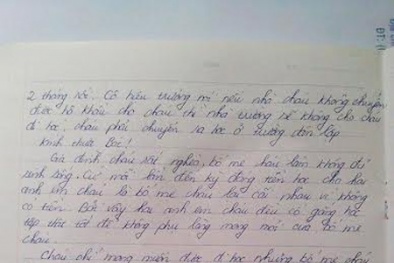 2 tháng rồi. Cô hiệu trưởng nói nếu nhà cháu không chuyển
được hộ khẩu cho cháu thì nhà trường sẽ không cho cháu
đi học, cháu phải chuyển ra học ở trường dân lập
Kính thưa Bác!
Gia đình cháu rất nghèo, bố mẹ cháu làm không đủ
sinh sống. Cứ mỗi lần đến kỳ đóng tiền học cho hai
anh em cháu là bố mẹ cháu lại cãi nhau vì không
có tiền. Bởi vậy hai anh em cháu đều cố gắng học
tập thật tốt để không phụ lòng mong mỏi của bố mẹ
cháu.
Cháu chỉ mong muốn được đi học nhưng bố mẹ cháu